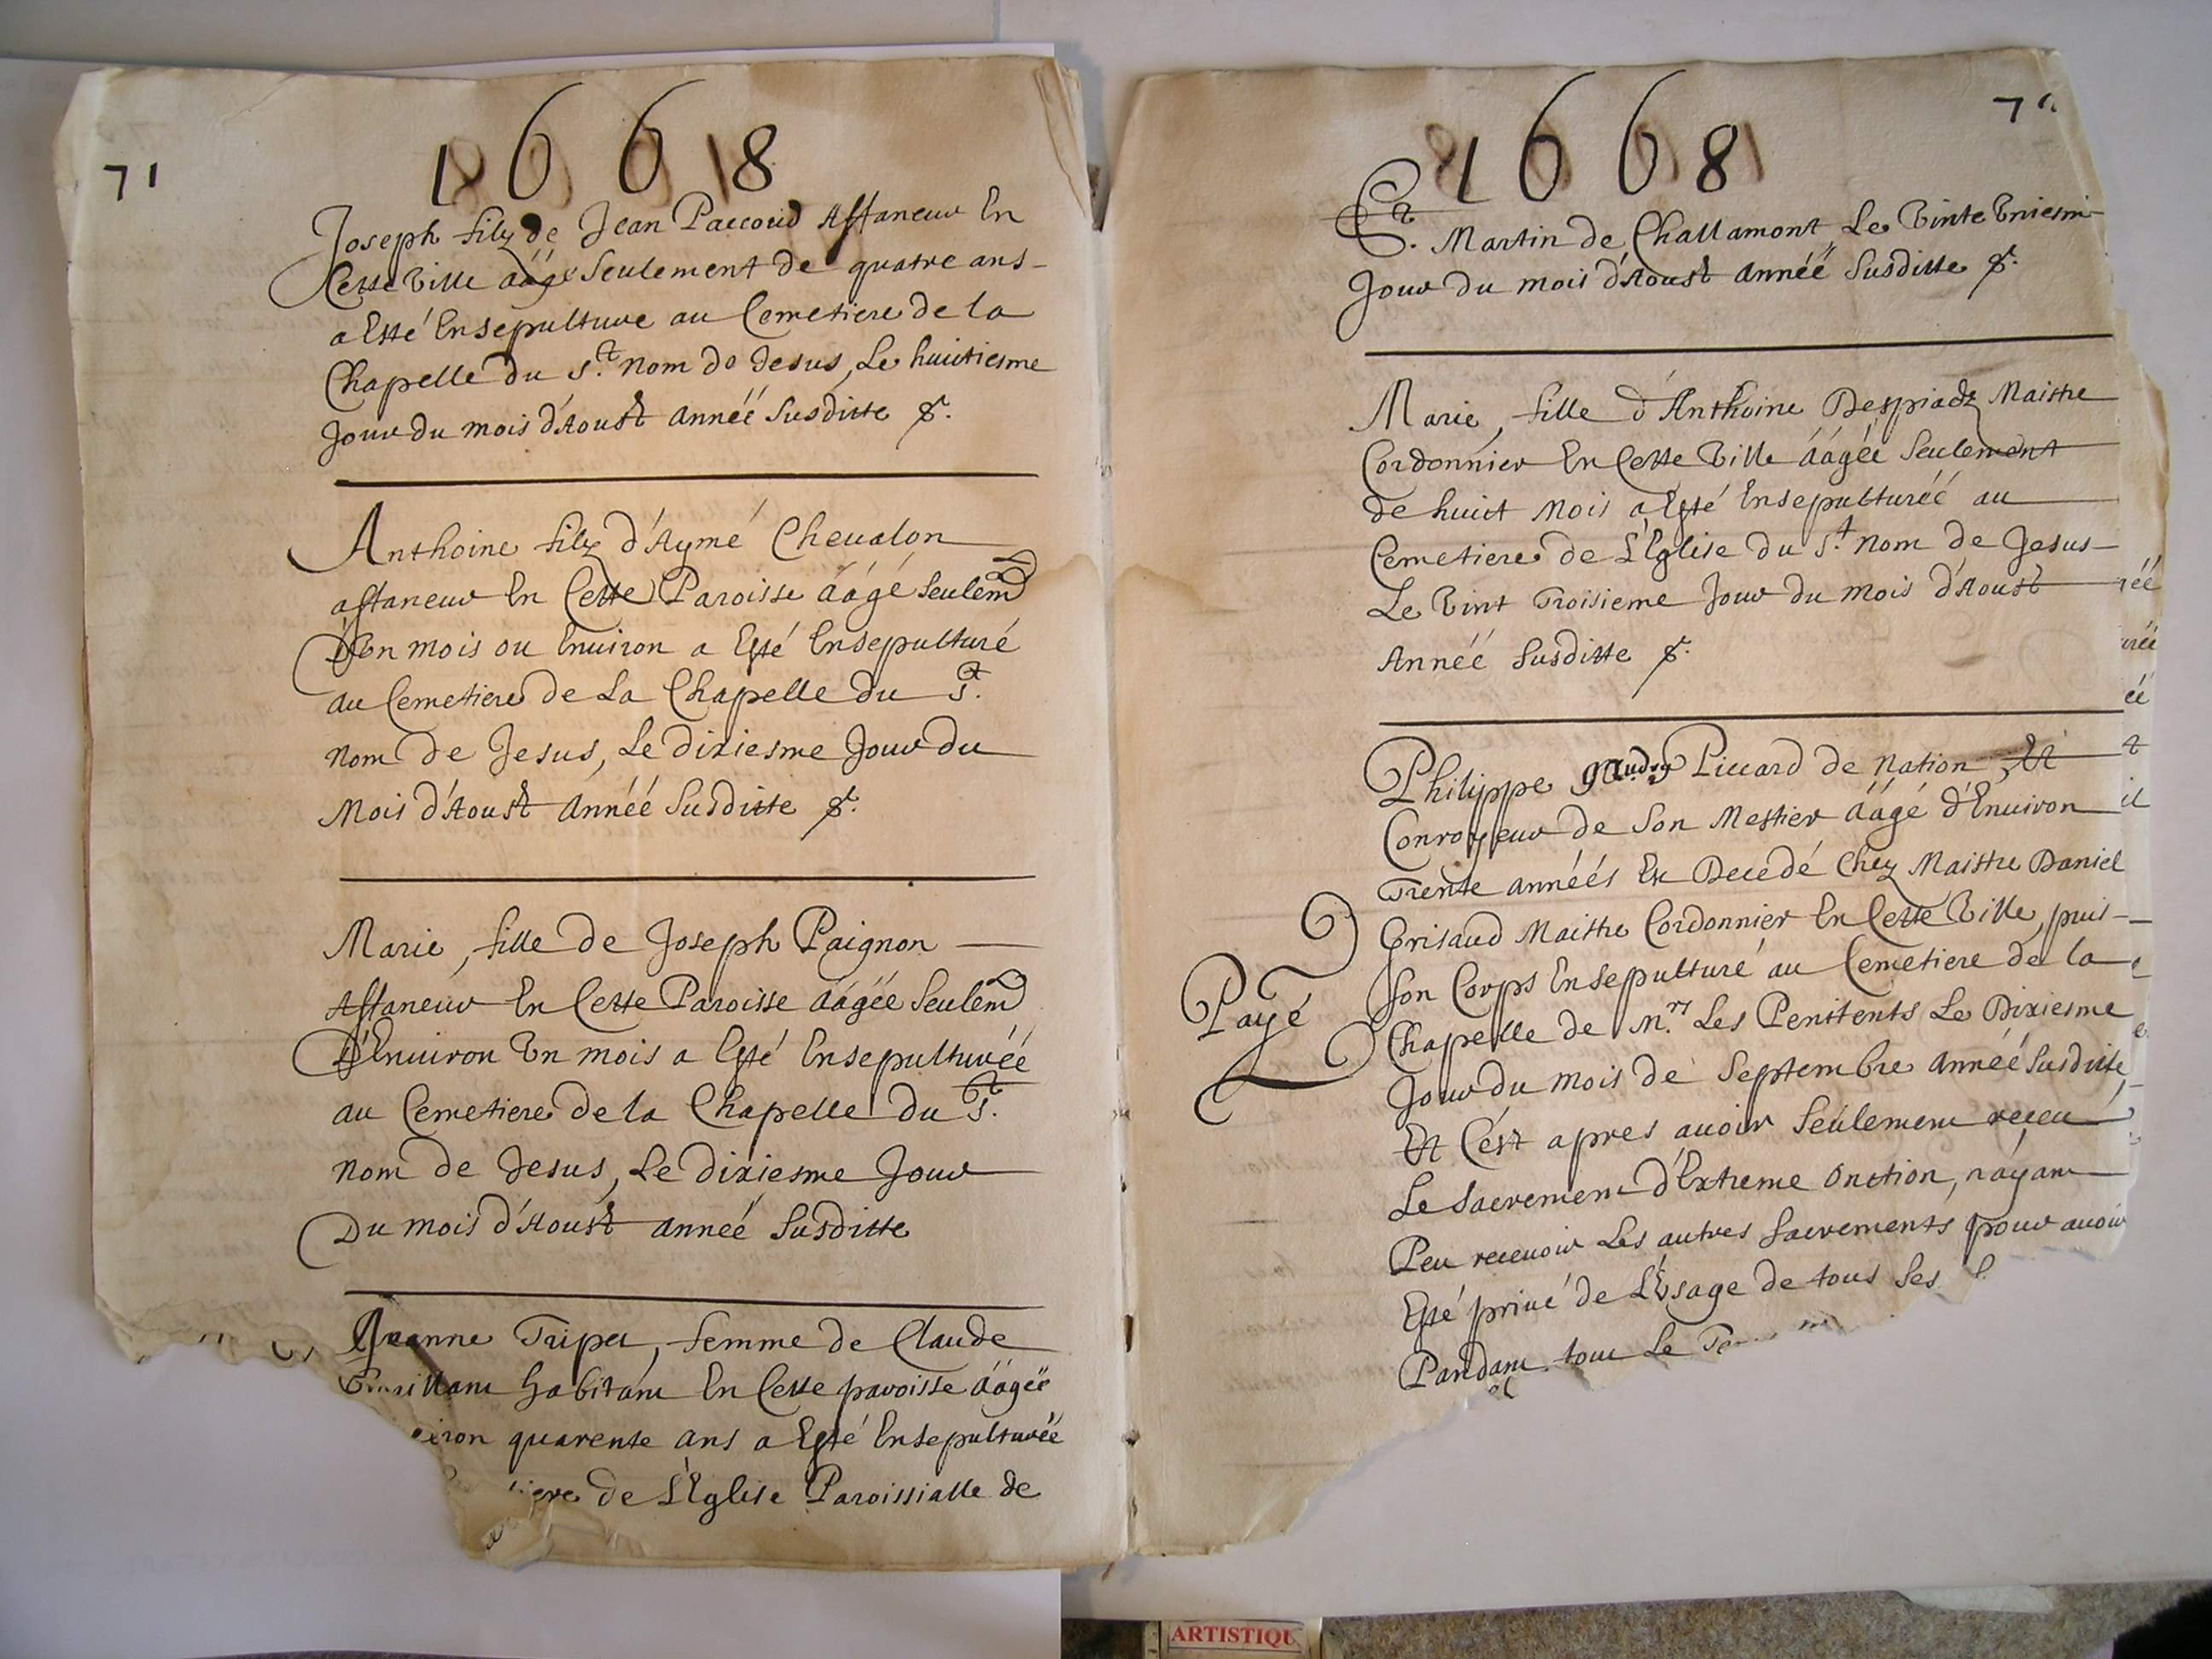 71
1668
Joseph filz de Jean Paccoud Affaneur En
Cette Ville aâgé Seulement de quatre ans
a Esté Ensepulture au Cemetiere de la
Chapelle du S.t nom de Jesus, Le huictiesme
Jour du mois d'Aoust Année Susditte &.
Anthoine filz d'Aymé Cheualon
affaneur En Cette Paroisse ââgé Seulem
D'Vn mois ou Enuiron a Esté Ensepulturé
au Cemetiere de La Chapelle du S.t
nom de Jesus, Le dixiesme Jour du
Mois d'Aoust Année Susditte &.
Marie, fille de Joseph Paignon
Affaneur En Cette Paroisse ââgée Seulem
D'Enuiron Vn mois a Esté Ensepulturée
au Cemetiere de la Chapelle du S.t
nom de Jesus, Le dixiesme Jour
Du mois d'Aoust année Susditte
Jeanne Tripet, femme de Claude
habitant En Cette paroisse ââgée
quarente ans a Esté Ensepulturée
de L'Eglise Paroissialle de
1668
S.t Martin de Challamont Le Vinte Vniesm
Jour du mois d'Aoust année Susditte &.
Marie, fille d'Anthoine Despiadz Maistre
Cordonnier En Cette Ville ââgée Seulement
de huict mois a Esté Ensepulturée au
Cemetiere de L'Eglise du S.t nom de Jesus
Le Vint Troisieme Jour du mois d'Aoust
Année Susditte &.
Philippe gaudry Piccard de nation, Et
Conroyeur de Son Mestier ââgé d'Enuiron
Trente années Est Decedé Chez Maistre Daniel
Grisaud Maistre Cordonnier En Cette Ville, puis
Son Corps Ensepulturé au Cemetiere de la
Payé
Chapelle de M.rs Les Penitents Le Dixiesme
Jour du mois de Septembre année Susditte
Et C'est apres auoir Seulement receu
Le Sacrement d'Extreme Onction, n'ayant
Peu receuoir Les autres Sacrements pour auoir
Esté priué de L'Vsage de tous Ses
Pandant tout Le
ARTISTIQU